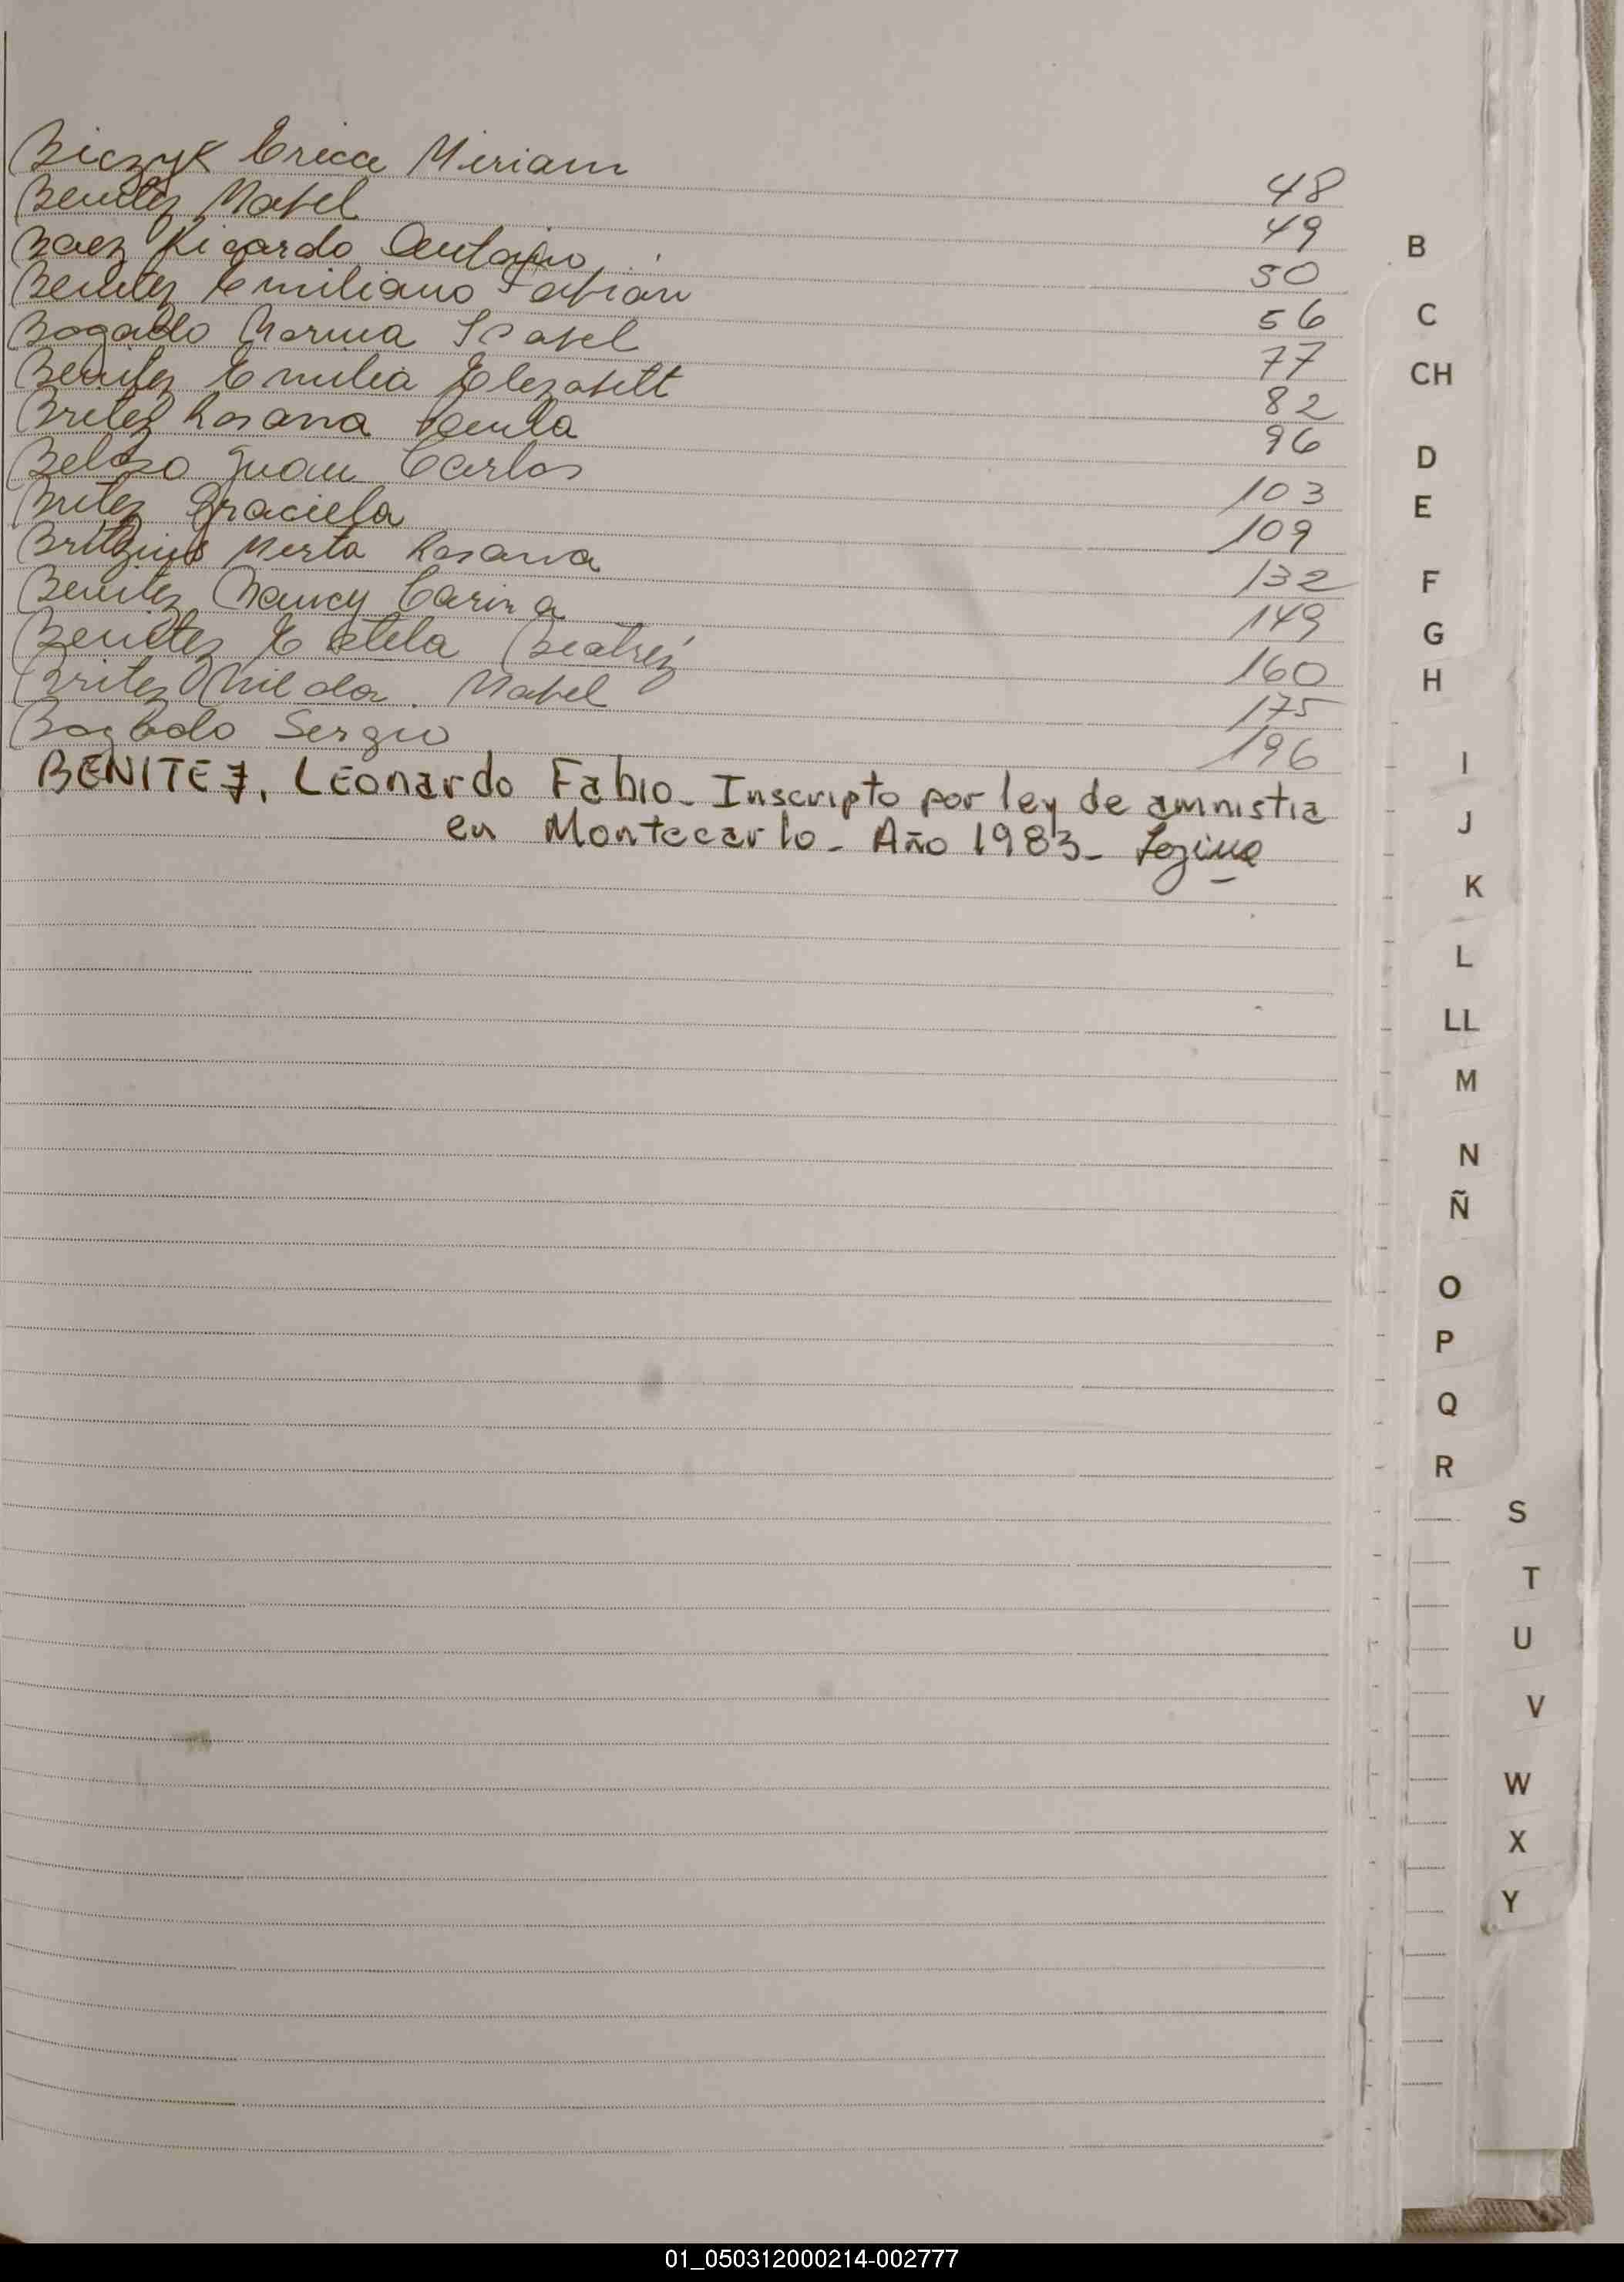 Biczyk Erica Miriam 48
Benitez Mabel 49
Baez Ricardo Antonio 50
Benitez Emiliano Fabian 56
Bogado Norma Isabel 77
Benitez Emilia Elezabett 82
Britez Rosana 96
Beloso Juan Carlos 103
Britez Graciela 109
Mirta Rosana 132
Benitez Nancy Carina 149
Benitez Estela Beatréz 160
Britez Nilda Mabel 175
Bogado Sergio 196
BENITEZ, Leonardo Fabio - Inscripto por ley de amnistia
en Montecarlo - Año 1983 -
B
C
CH
D
E
F
G
H
I
J
K
L
LL
M
N
Ñ
O
P
Q
R
S
T
U
V
W
X
Y
01_050312000214-002777